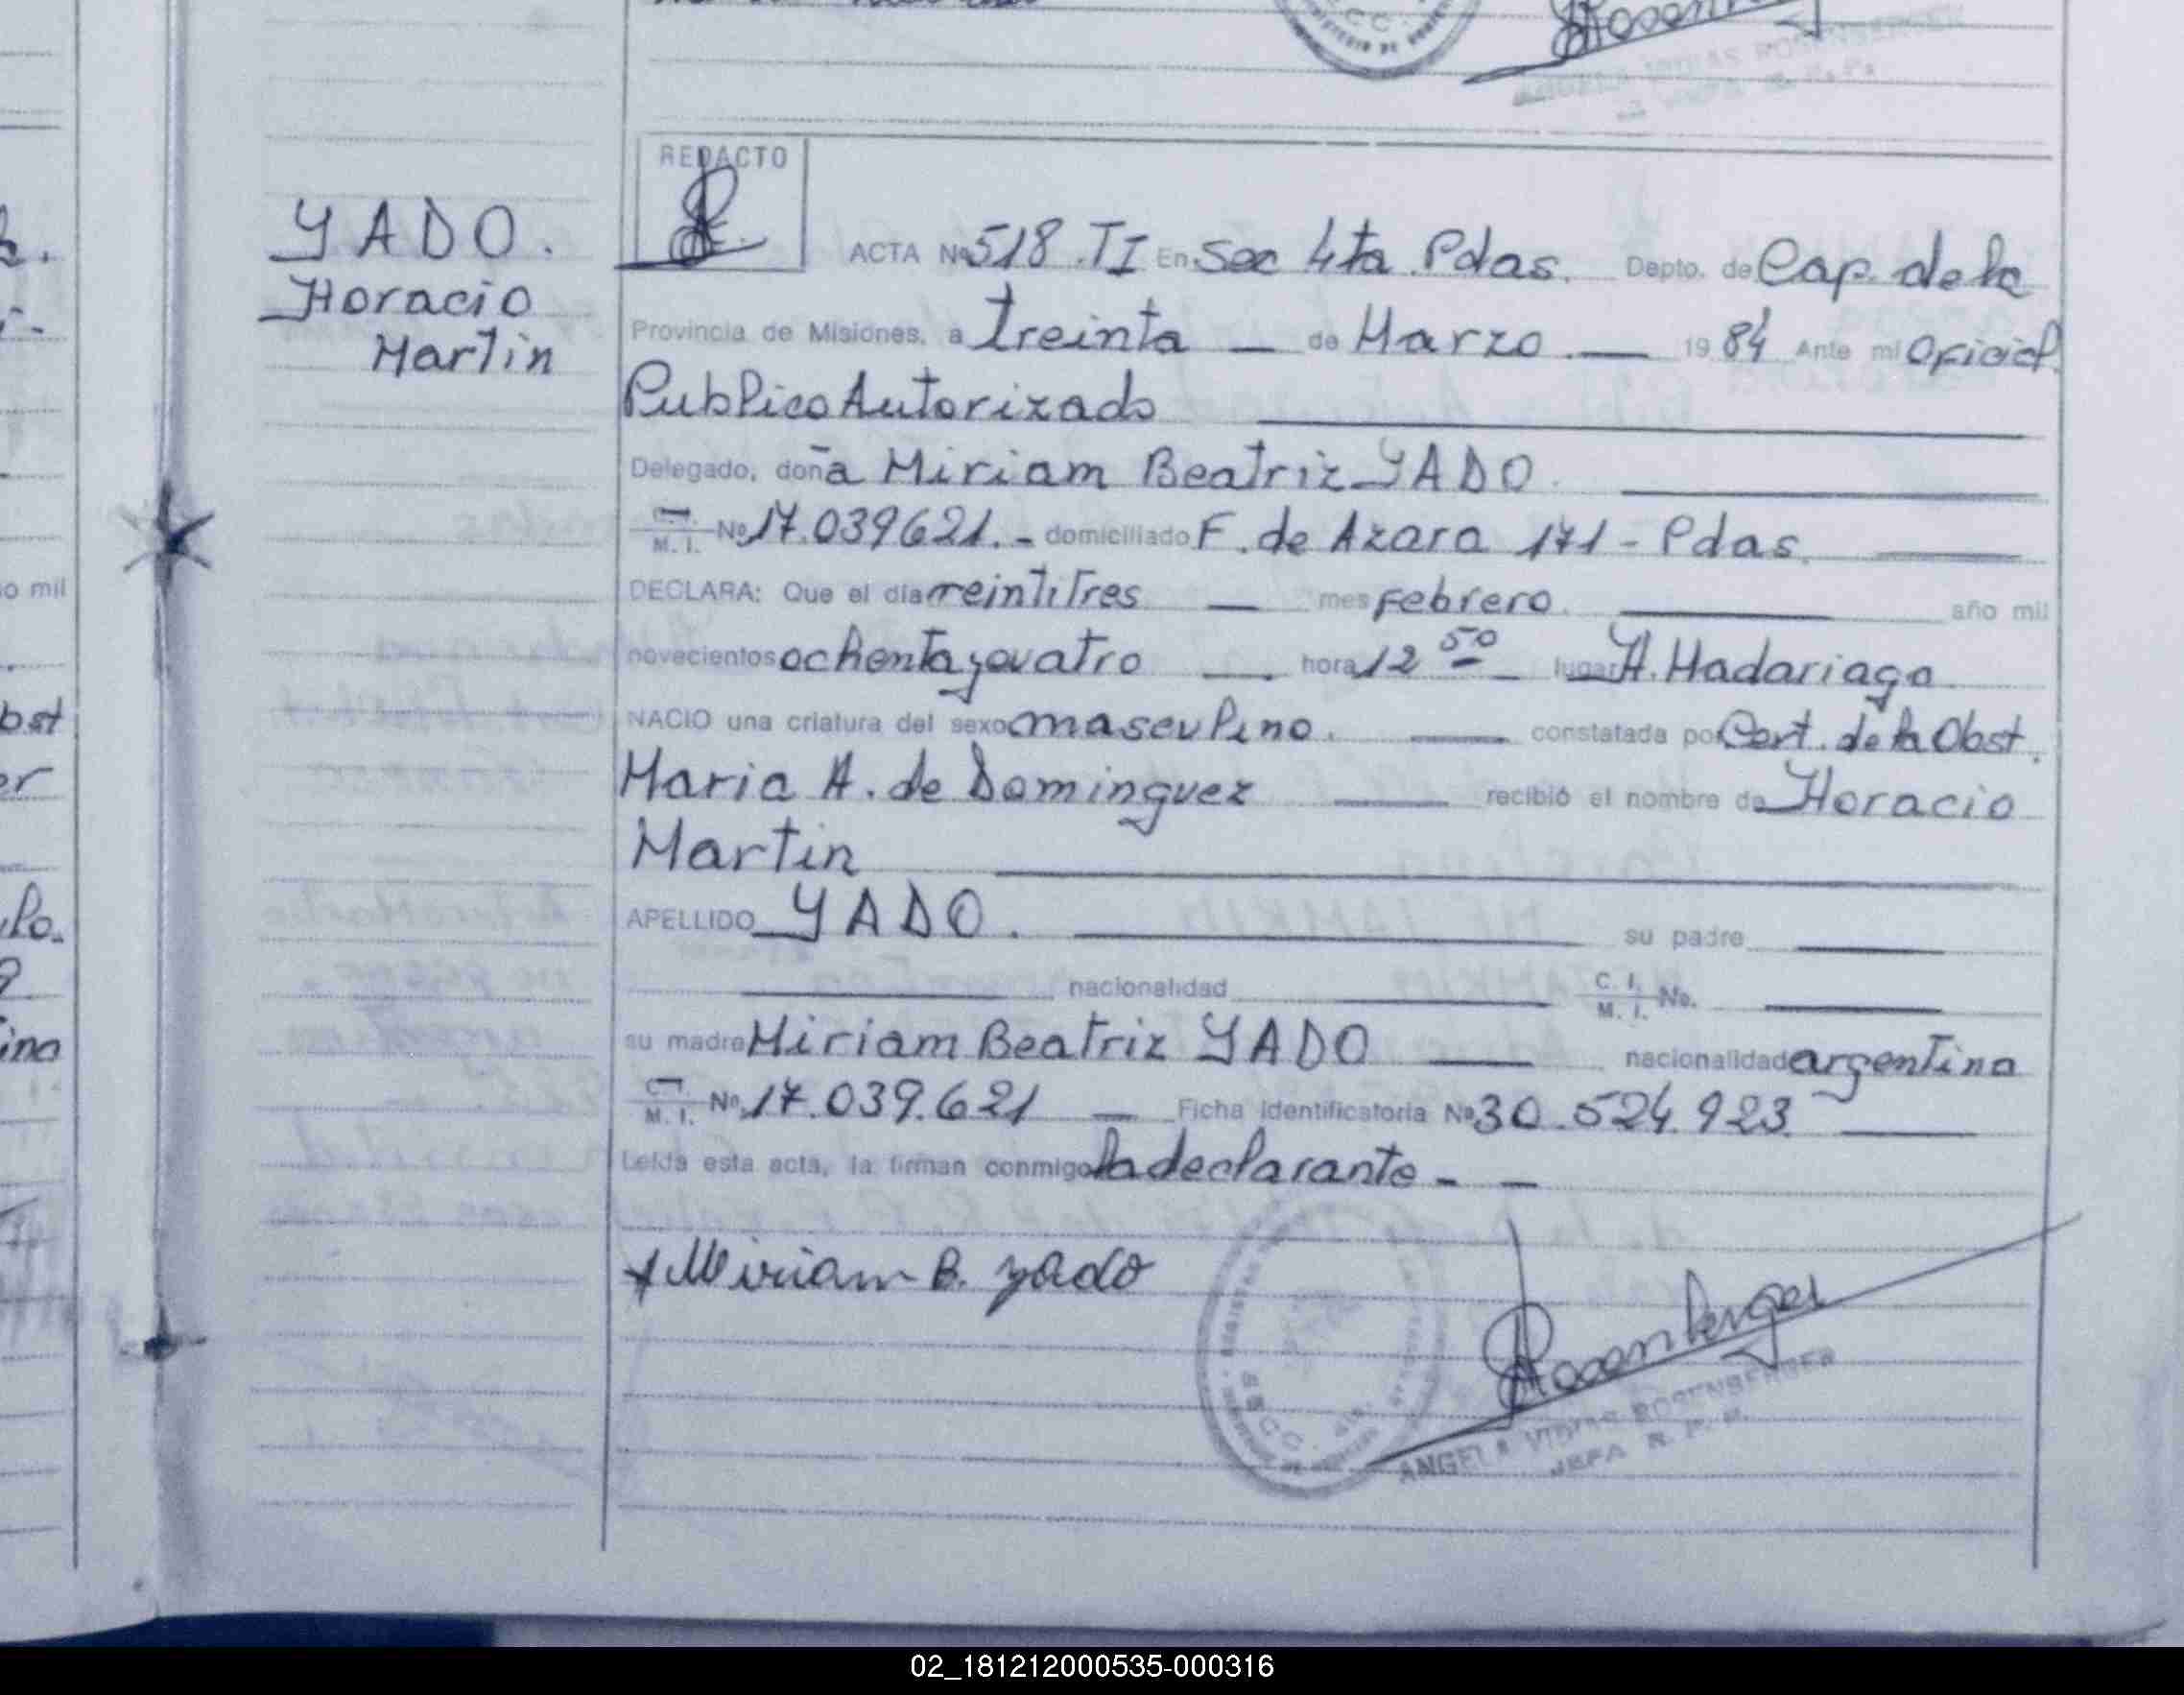 YADO.
Horacio
Martin
REDACTO
ACTA Nº 518.TI En Sec 4ta Pdas. Depto. de Cap. de la
Provincia de Misiones, a treinta — de Marzo. — 1984 Ante mi Oficial
Publico Autorizado
Delegado, doña Miriam Beatriz YADO.
C.I. M. I. Nº 17.039621.- domiciliado F. de Azara 171 - Pdas.
DECLARA: Que el día veintitres — mes febrero. año mil
novecientos ochenta y cuatro — hora 12 50 lugar H. Madariaga
NACIO una criatura del sexo masculino. — constatada por Cert. de la Obst.
Maria A. de Dominguez — recibió el nombre de Horacio
Martin
APELLIDO YADO. su padre
nacionalidad C. I. M. I. No.
su madre Miriam Beatriz YADO — nacionalidad argentina
C.I. M. I. No. 17.039.621 — Ficha Identificatoria Nº 30.524.923
Leída esta acta, la firman conmigo la declarante - —
Miriam B. Yado
Rosenberger
ANGELA VIDAS ROSENBERGER
JEFA R. P. P.
o mil
bst
er
ina
02_181212000535-000316